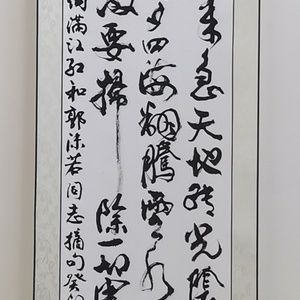 来急天地转光陰
夕四海翻騰雲水
激要掃除一切害
詞滿江红和郭沫若同志摘句癸卯